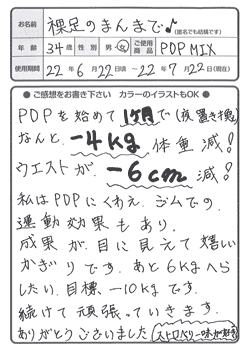 お名前 裸足のまんまで♪ (匿名でも結構です)
年齢 34歳 性別 男・女 ご使用商品 POP MIX
使用期間 22年6月22日頃 〜 22年7月22日(現在)
●ご感想をお書き下さい カラーのイラストもOK●
POPを始めて1ヶ月で(板置き換え)
なんと、-4kg 体重減!
ウエストが -6cm 減!
私はPOPにくわえ、ジムでの
運動効果もあり、
成果が目に見えて嬉しい
かぎりです。あと6kgへら
したい。目標、-10kgです。
続けて頑張っていきます。
ありがとうございました(ストロベリー味が好き)